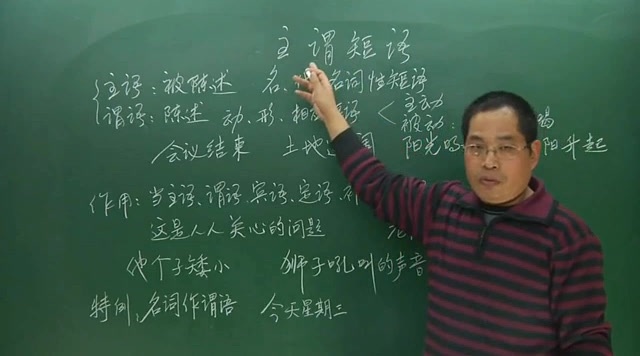 主谓短语
主语:被陈述 名、 名词性短语
谓语:陈述 动、形、相 短语 < 主动 被动
会议结束 土地 阳光 阳升起
作用:当主语、谓语、宾语、定语、
这是人人关心的问题
他个子矮小 狮子吼叫的声音
特例,名词作谓语 今天星期三